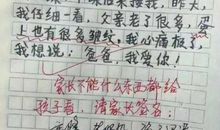 后来接我，昨天，
我仔细一看，父亲老了很多，
上也有很多皱纹，我心痛极了，
我想说：爸爸，我爱你！
家长不能什么东西都给
孩子看，请家长签名：